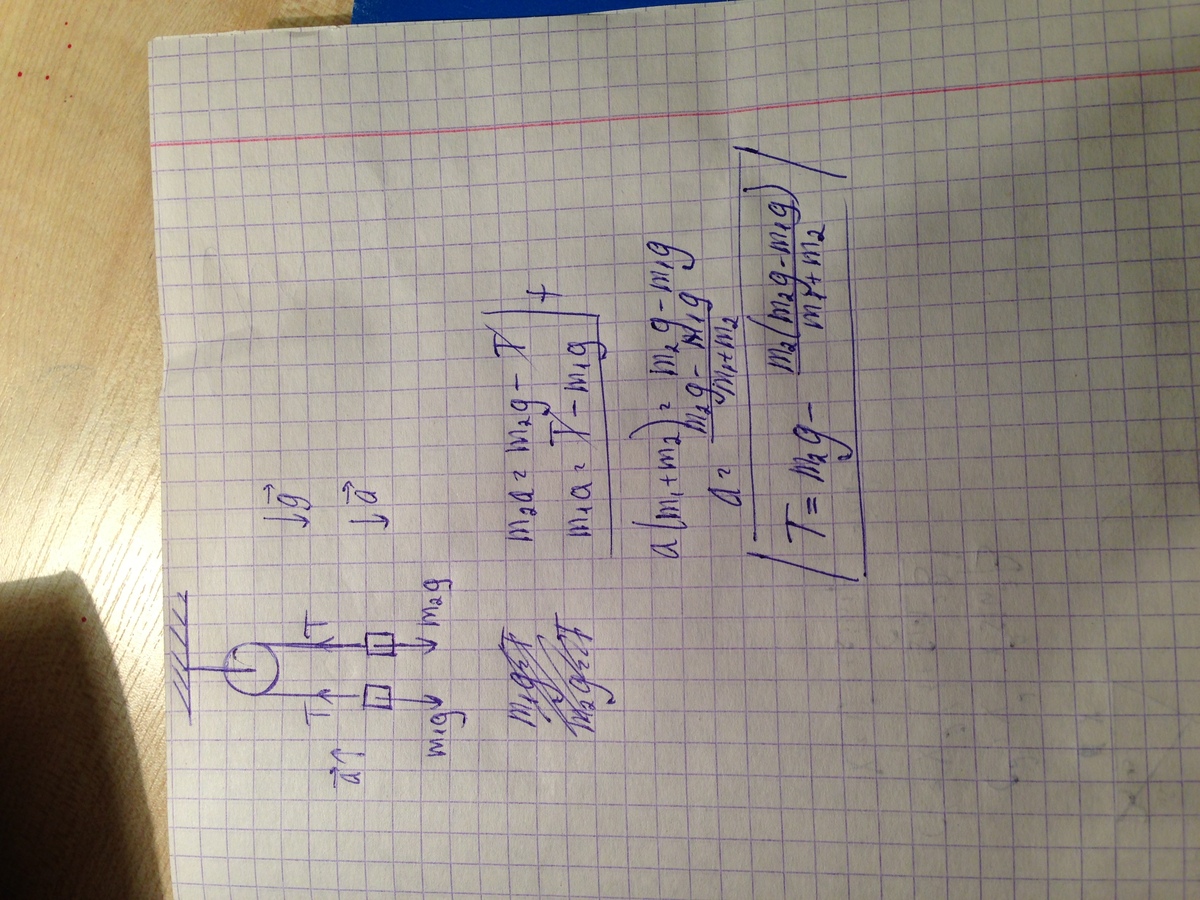 T T
a↑ ↓g
↓a
m₁g m₂g
m₁g=T
m₂g=T
m₂a = m₂g - T
m₁a = T - m₁g | +
a(m₁+m₂) = m₂g - m₁g
a = (m₂g - m₁g)/(m₁+m₂)
T = m₂g - m₂(m₂g - m₁g)/(m₁+m₂)